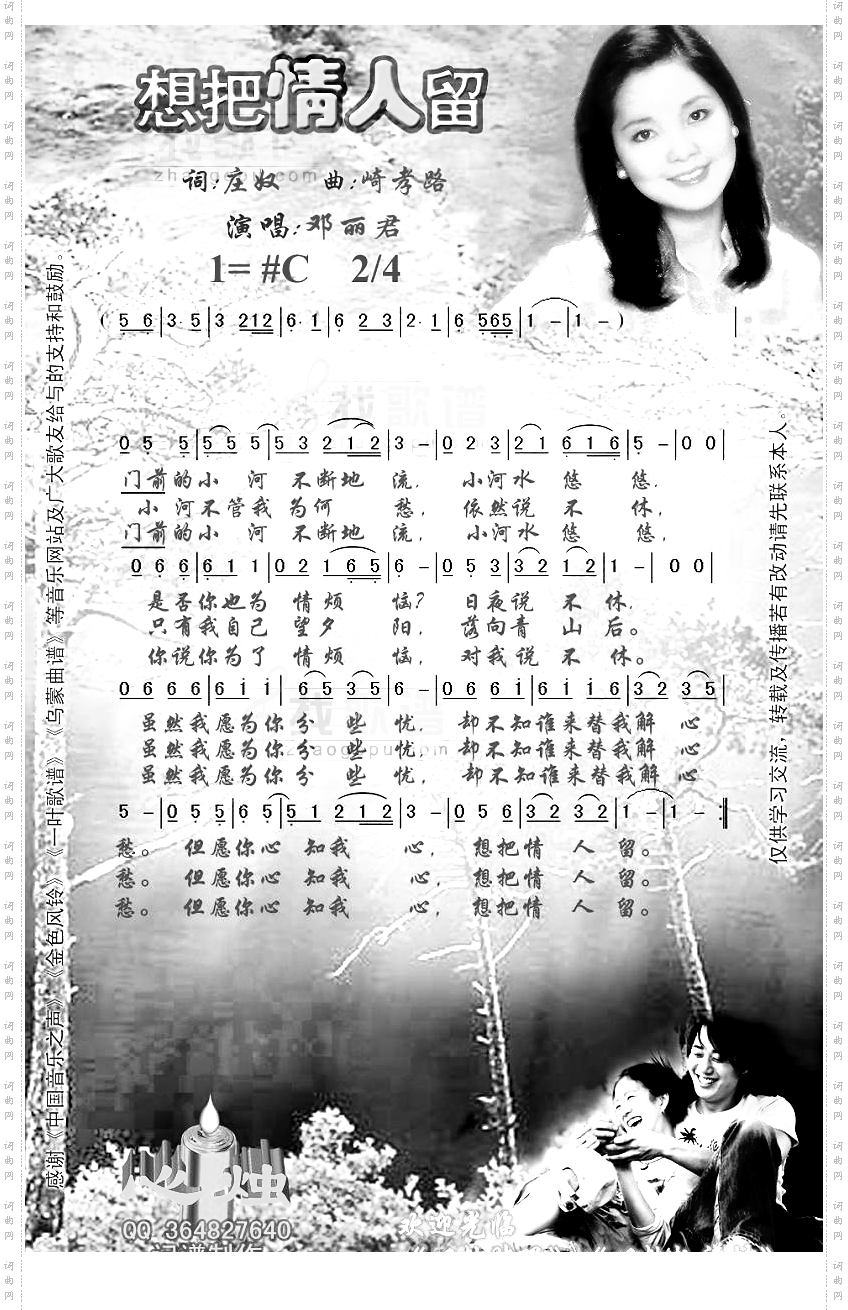 想把情人留
词:庄奴 曲:崎孝路
演唱:邓丽君
1= #C 2/4
( 5 6 | 3· 5 | 3 212 | 6· 1 | 6 2 3 | 2· 1 | 6 565 | 1 - | 1 - )
0 5 5 | 5 5 5 | 5 3 2 1 2 | 3 - | 0 2 3 | 2 1 6 1 6 | 5 - | 0 0
门前的小 河 不断地 流, 小河水 悠 悠,
小 河不管我 为何 愁, 依然说 不 休,
门前的小 河 不断地 流, 小河水 悠 悠,
0 6 6 | 6 1 1 | 0 2 1 6 5 | 6 - | 0 5 3 | 3 2 1 2 | 1 - | 0 0
是否你也为 情烦 恼? 日夜说 不 休,
只有我自己 望夕 阳, 落向青 山 后。
你说你为了 情烦 恼, 对我说 不 休。
0 6 6 6 | 6 i 1 | 6 5 3 5 | 6 - | 0 6 6 i | 6 i i 6 | 3 2 3 5
虽然我愿为你分 些 忧, 却不知谁来替我解 心
虽然我愿为你分 些 忧, 却不知谁来替我解 心
虽然我愿为你分 些 忧, 却不知谁来替我解 心
5 - | 0 5 5 | 6 5 | 5 1 2 1 2 | 3 - | 0 5 6 | 3 2 3 2 | 1 - | 1 - :||
愁。 但愿你心 知我 心, 想把情 人 留。
愁。 但愿你心 知我 心, 想把情 人 留。
愁。 但愿你心 知我 心, 想把情 人 留。
感谢《中国音乐之声》《金色风铃》《一叶歌谱》《乌蒙曲谱》等音乐网站及广大歌友给与的支持和鼓励。
仅供学习交流,转载及传播若有改动请先联系本人。
心烛
QQ 364827640
词谱制作
欢迎光临